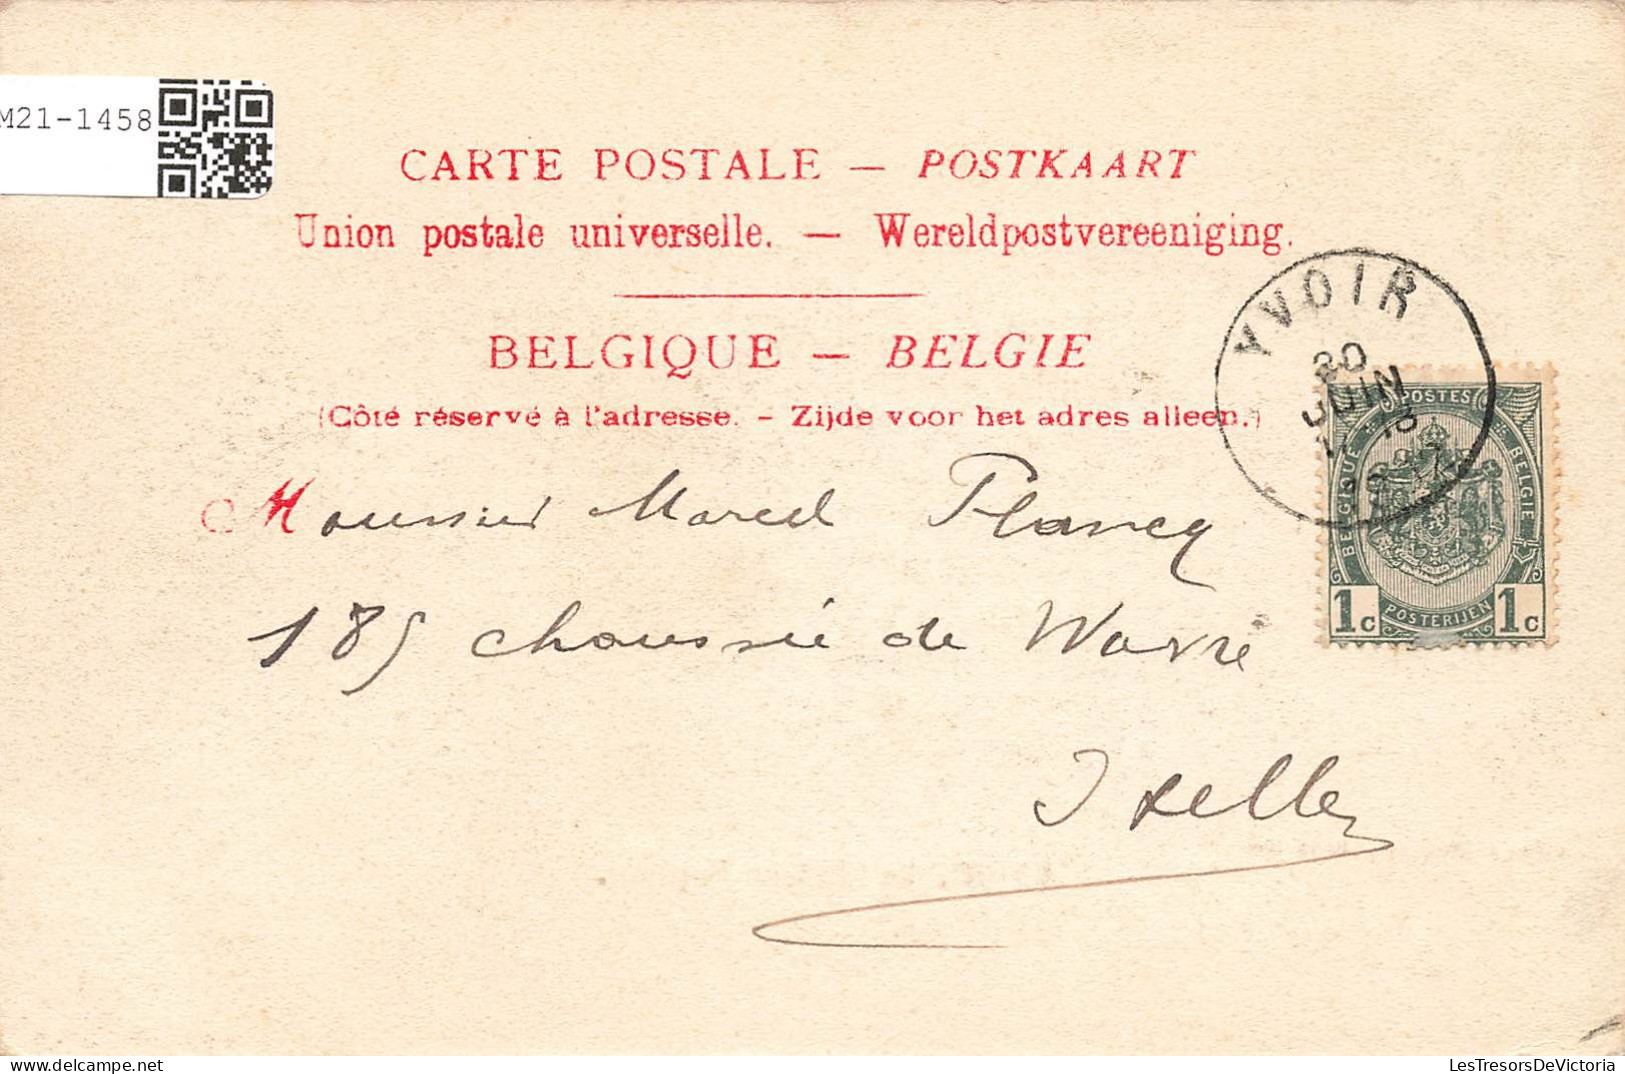 M21-1458
CARTE POSTALE — POSTKAART
Union postale universelle. — Wereldpostvereeniging.
BELGIQUE — BELGIE
(Côté réservé à l'adresse. - Zijde voor het adres alleen.)
YVOIR
20
JUIN
POSTES
BELGIQUE
BELGIE
POSTERIJEN
1c 1c
Monsieur Marcel Plancq
185 chaussée de Wavre
Ixelles
LesTresorsDeVictoria